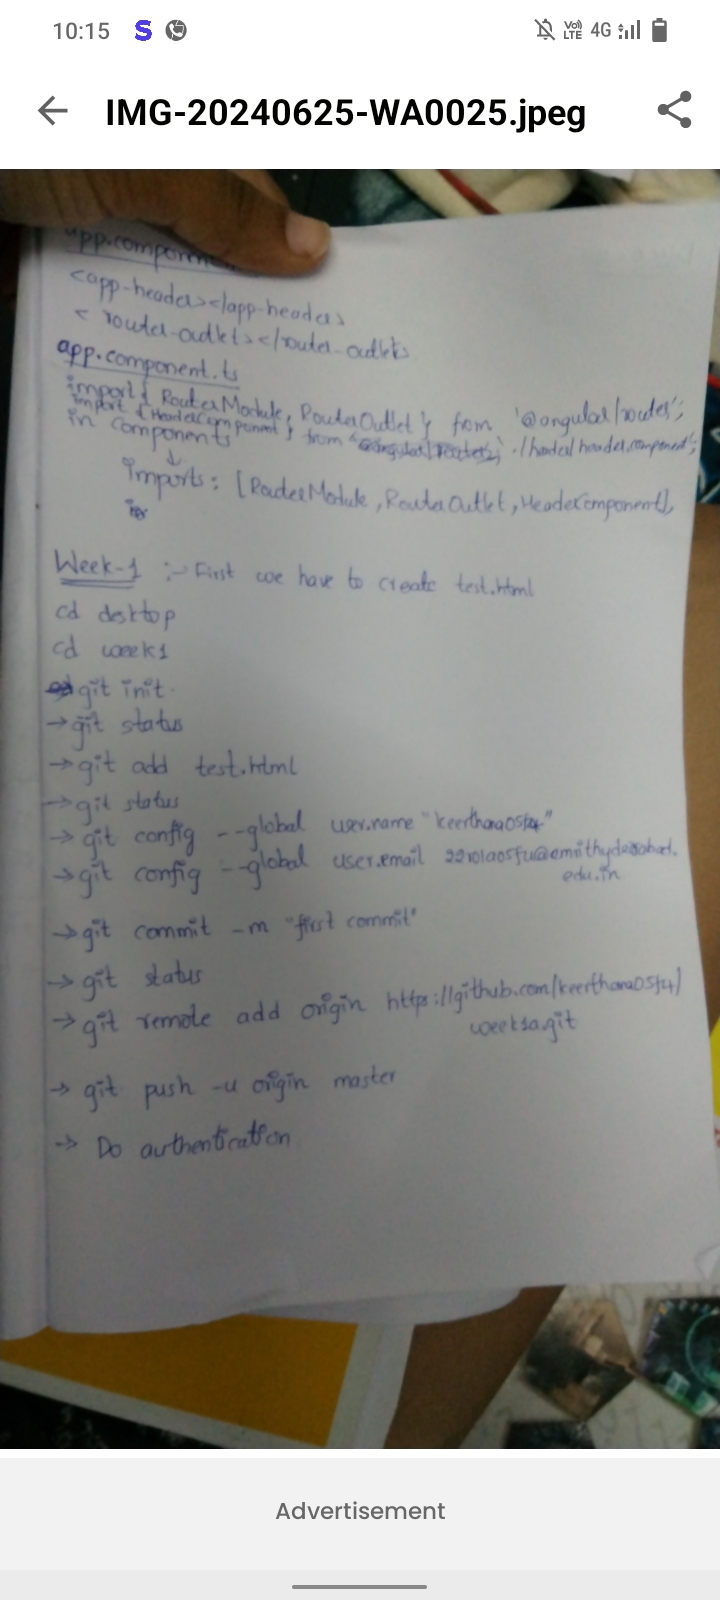 10:15 S Vo) LTE 4G
IMG-20240625-WA0025.jpeg
app.component
<app-header></app-header>
< router-outlet></router-outlet>
app.component.ts
import { RouterModule, RouterOutlet } from '@angular/router';
import { HeaderComponent } from './header/header.component';
in components
↓
imports: [RouterModule, RouterOutlet, HeaderComponent],
Week-1 :- First we have to create test.html
cd desktop
cd week1
git init.
→ git status
→ git add test.html
→ git status
→ git config --global user.name "keerthana05f4"
→ git config --global user.email
edu.in
→ git commit -m "first commit"
→ git status
→ git remote add origin https://github.com/keerthana05f4/
week1a.git
→ git push -u origin master
→ Do authentication
Advertisement